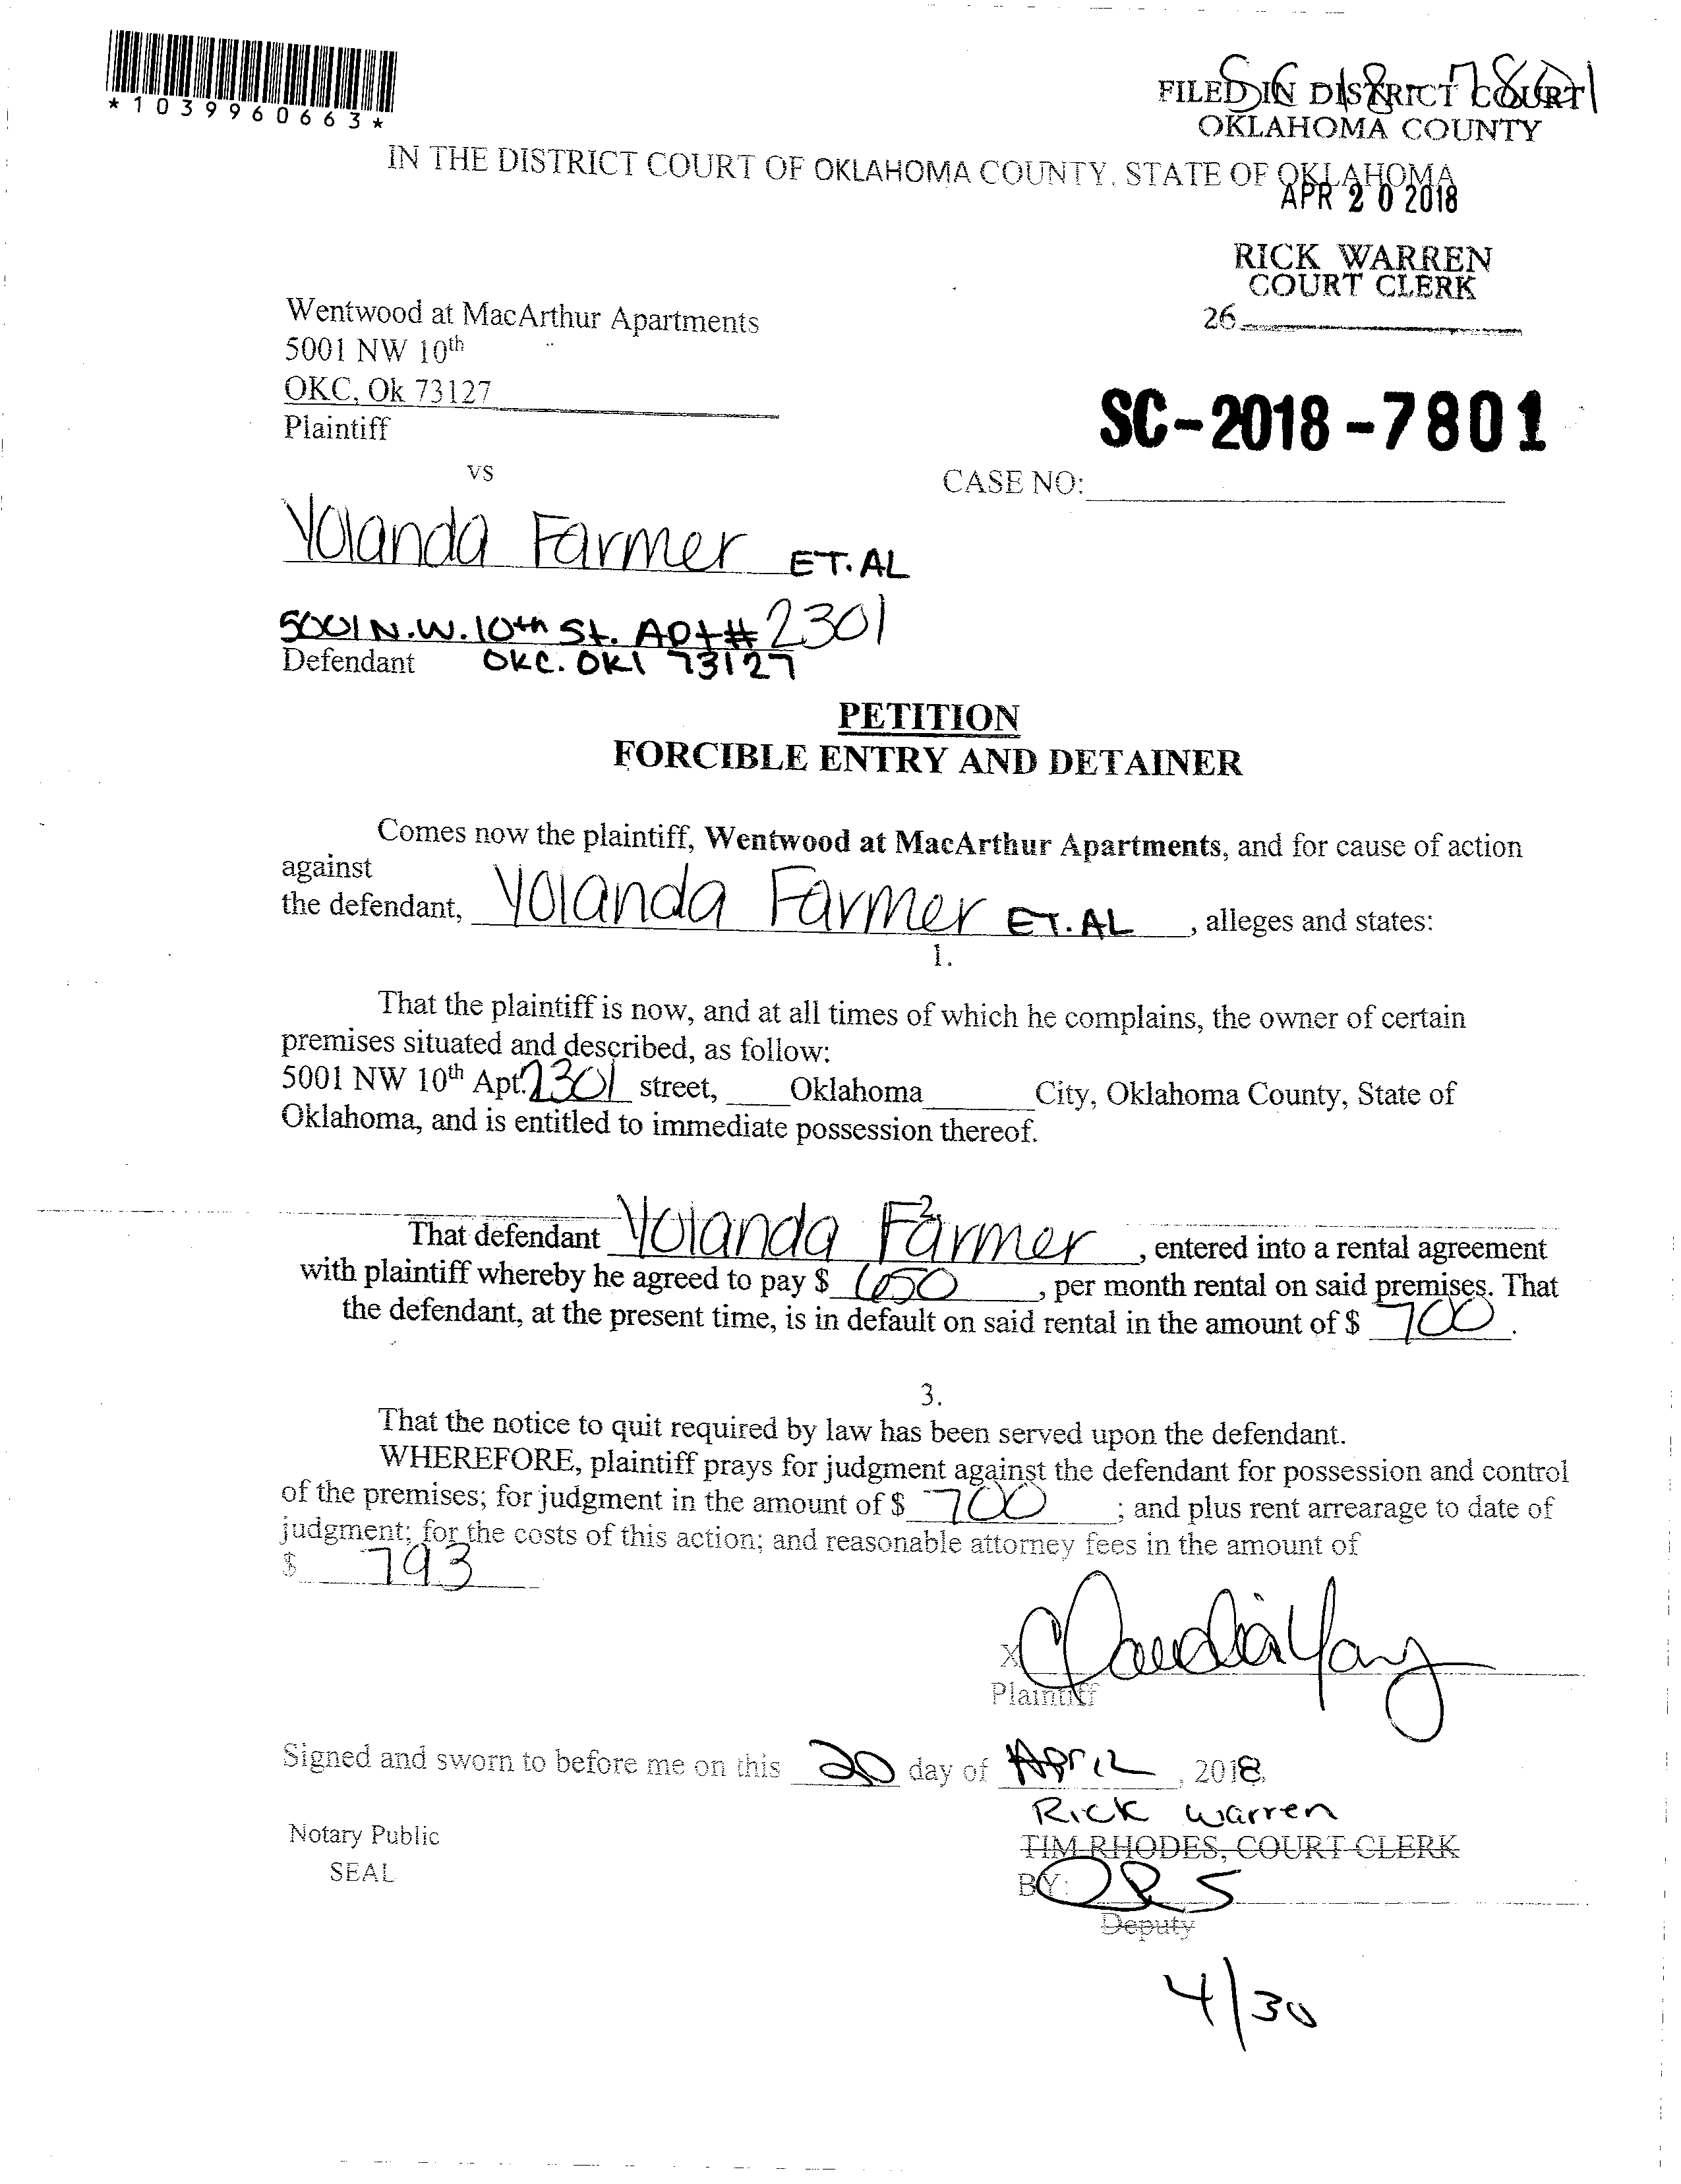 *1039960663*
SC 18 7801
FILED IN DISTRICT COURT
OKLAHOMA COUNTY
IN THE DISTRICT COURT OF OKLAHOMA COUNTY, STATE OF OKLAHOMA
APR 20 2018
RICK WARREN
COURT CLERK
26
Wentwood at MacArthur Apartments
5001 NW 10th
OKC, Ok 73127
Plaintiff
SC-2018-7801
vs
CASE NO:
Yolanda Farmer ET.AL
5001 N.W. 10th St. APt# 2301
Defendant OKC. OKl 73127
PETITION
FORCIBLE ENTRY AND DETAINER
Comes now the plaintiff, Wentwood at MacArthur Apartments, and for cause of action
against
the defendant, Yolanda Farmer ET.AL, alleges and states:
1.
That the plaintiff is now, and at all times of which he complains, the owner of certain
premises situated and described, as follow:
5001 NW 10th Apt. 2301 street, Oklahoma City, Oklahoma County, State of
Oklahoma, and is entitled to immediate possession thereof.
2
That defendant Yolanda Farmer, entered into a rental agreement
with plaintiff whereby he agreed to pay $ 650, per month rental on said premises. That
the defendant, at the present time, is in default on said rental in the amount of $ 700.
3.
That the notice to quit required by law has been served upon the defendant.
WHEREFORE, plaintiff prays for judgment against the defendant for possession and control
of the premises; for judgment in the amount of $ 700; and plus rent arrearage to date of
judgment; for the costs of this action; and reasonable attorney fees in the amount of
$ 793
X
Plaintiff
Signed and sworn to before me on this 20 day of APril, 2018.
Rick Warren
Notary Public
TIM RHODES, COURT CLERK
SEAL
BY:
Deputy
4/30